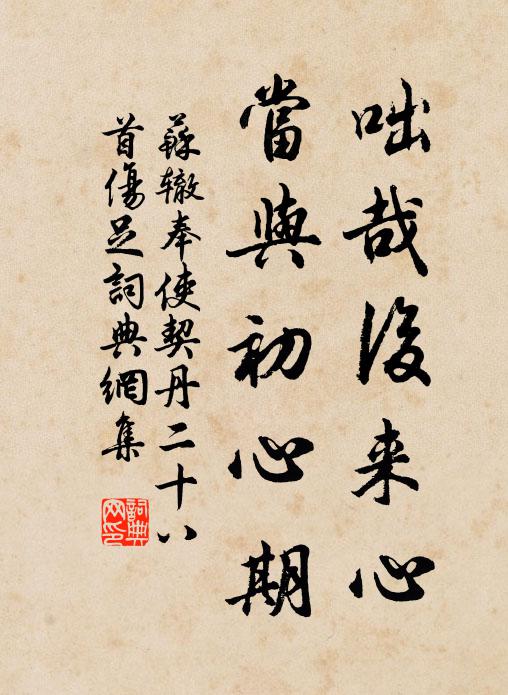 咄哉後来心
當與初心期
蘇辙奉使契丹二十八
首傷足詞典網集
詞典网印